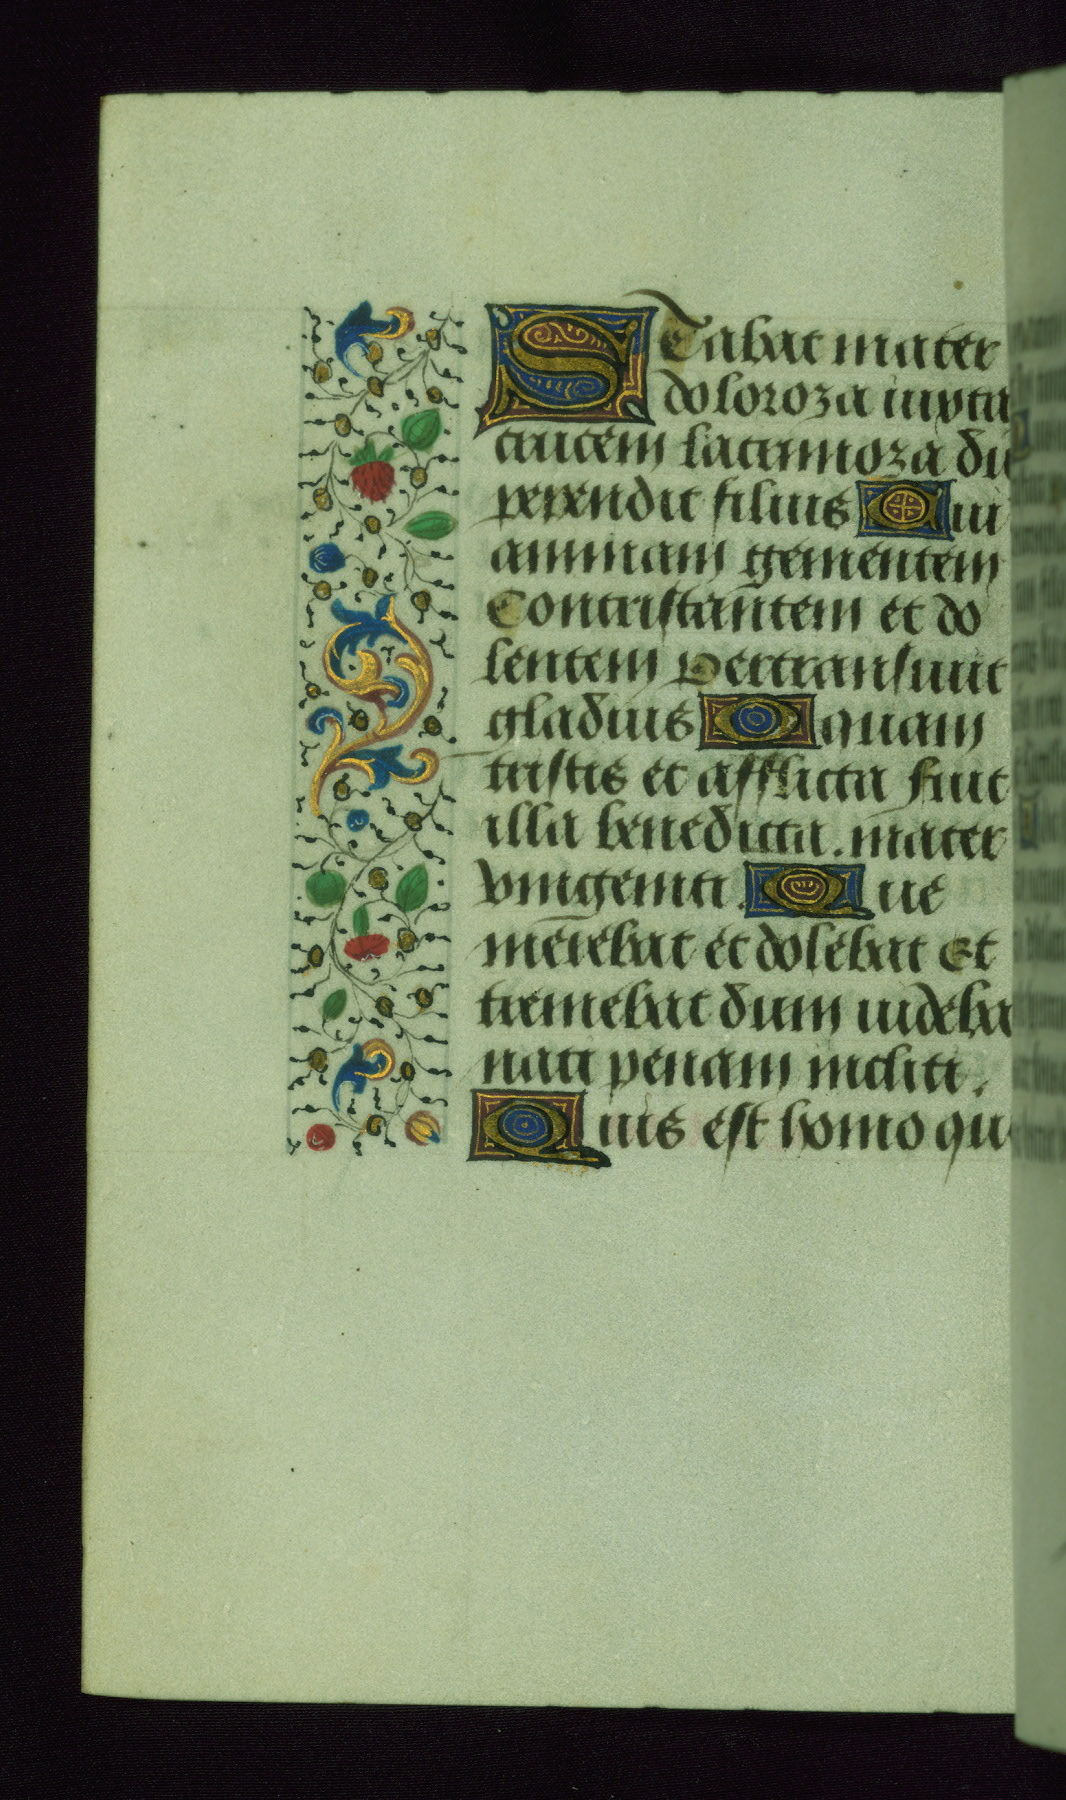 STabat mater
doloroza iuxta
crucem lacrimoza du
pependit filius Cui
animam gementem
Contristantem et do
lentem Pertransiuit
gladius O quam
tristis et afflicta fuit
illa benedicta. mater
vnigeniti. Que
merebat et dolebat Et
tremebat dum uideba
nati penam incliti.
Quis est homo qui